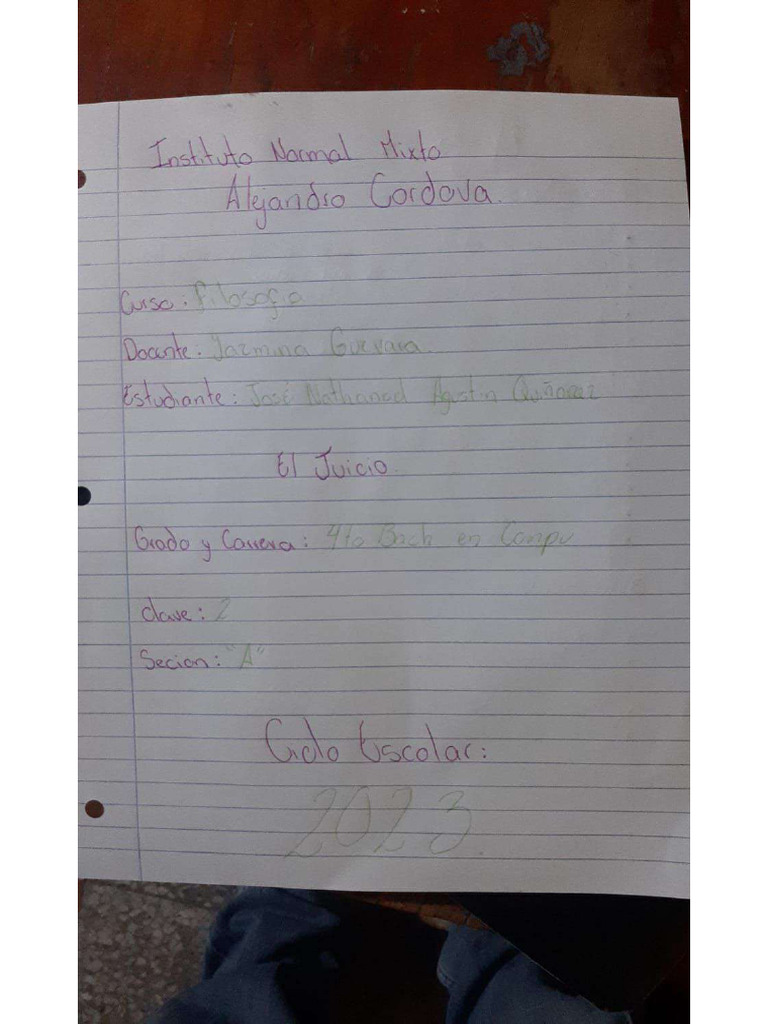 Instituto Normal Mixto
Alejandro Cordova.
Curso: Filosofia
Docente: Jazmina Guevara.
Estudiante: José Nathanael Agustin Quiñonez
El Juicio.
Grado y Carrera: 4to Bach en Compu
clave: 2
Secion: "A"
Ciclo Escolar:
2023.